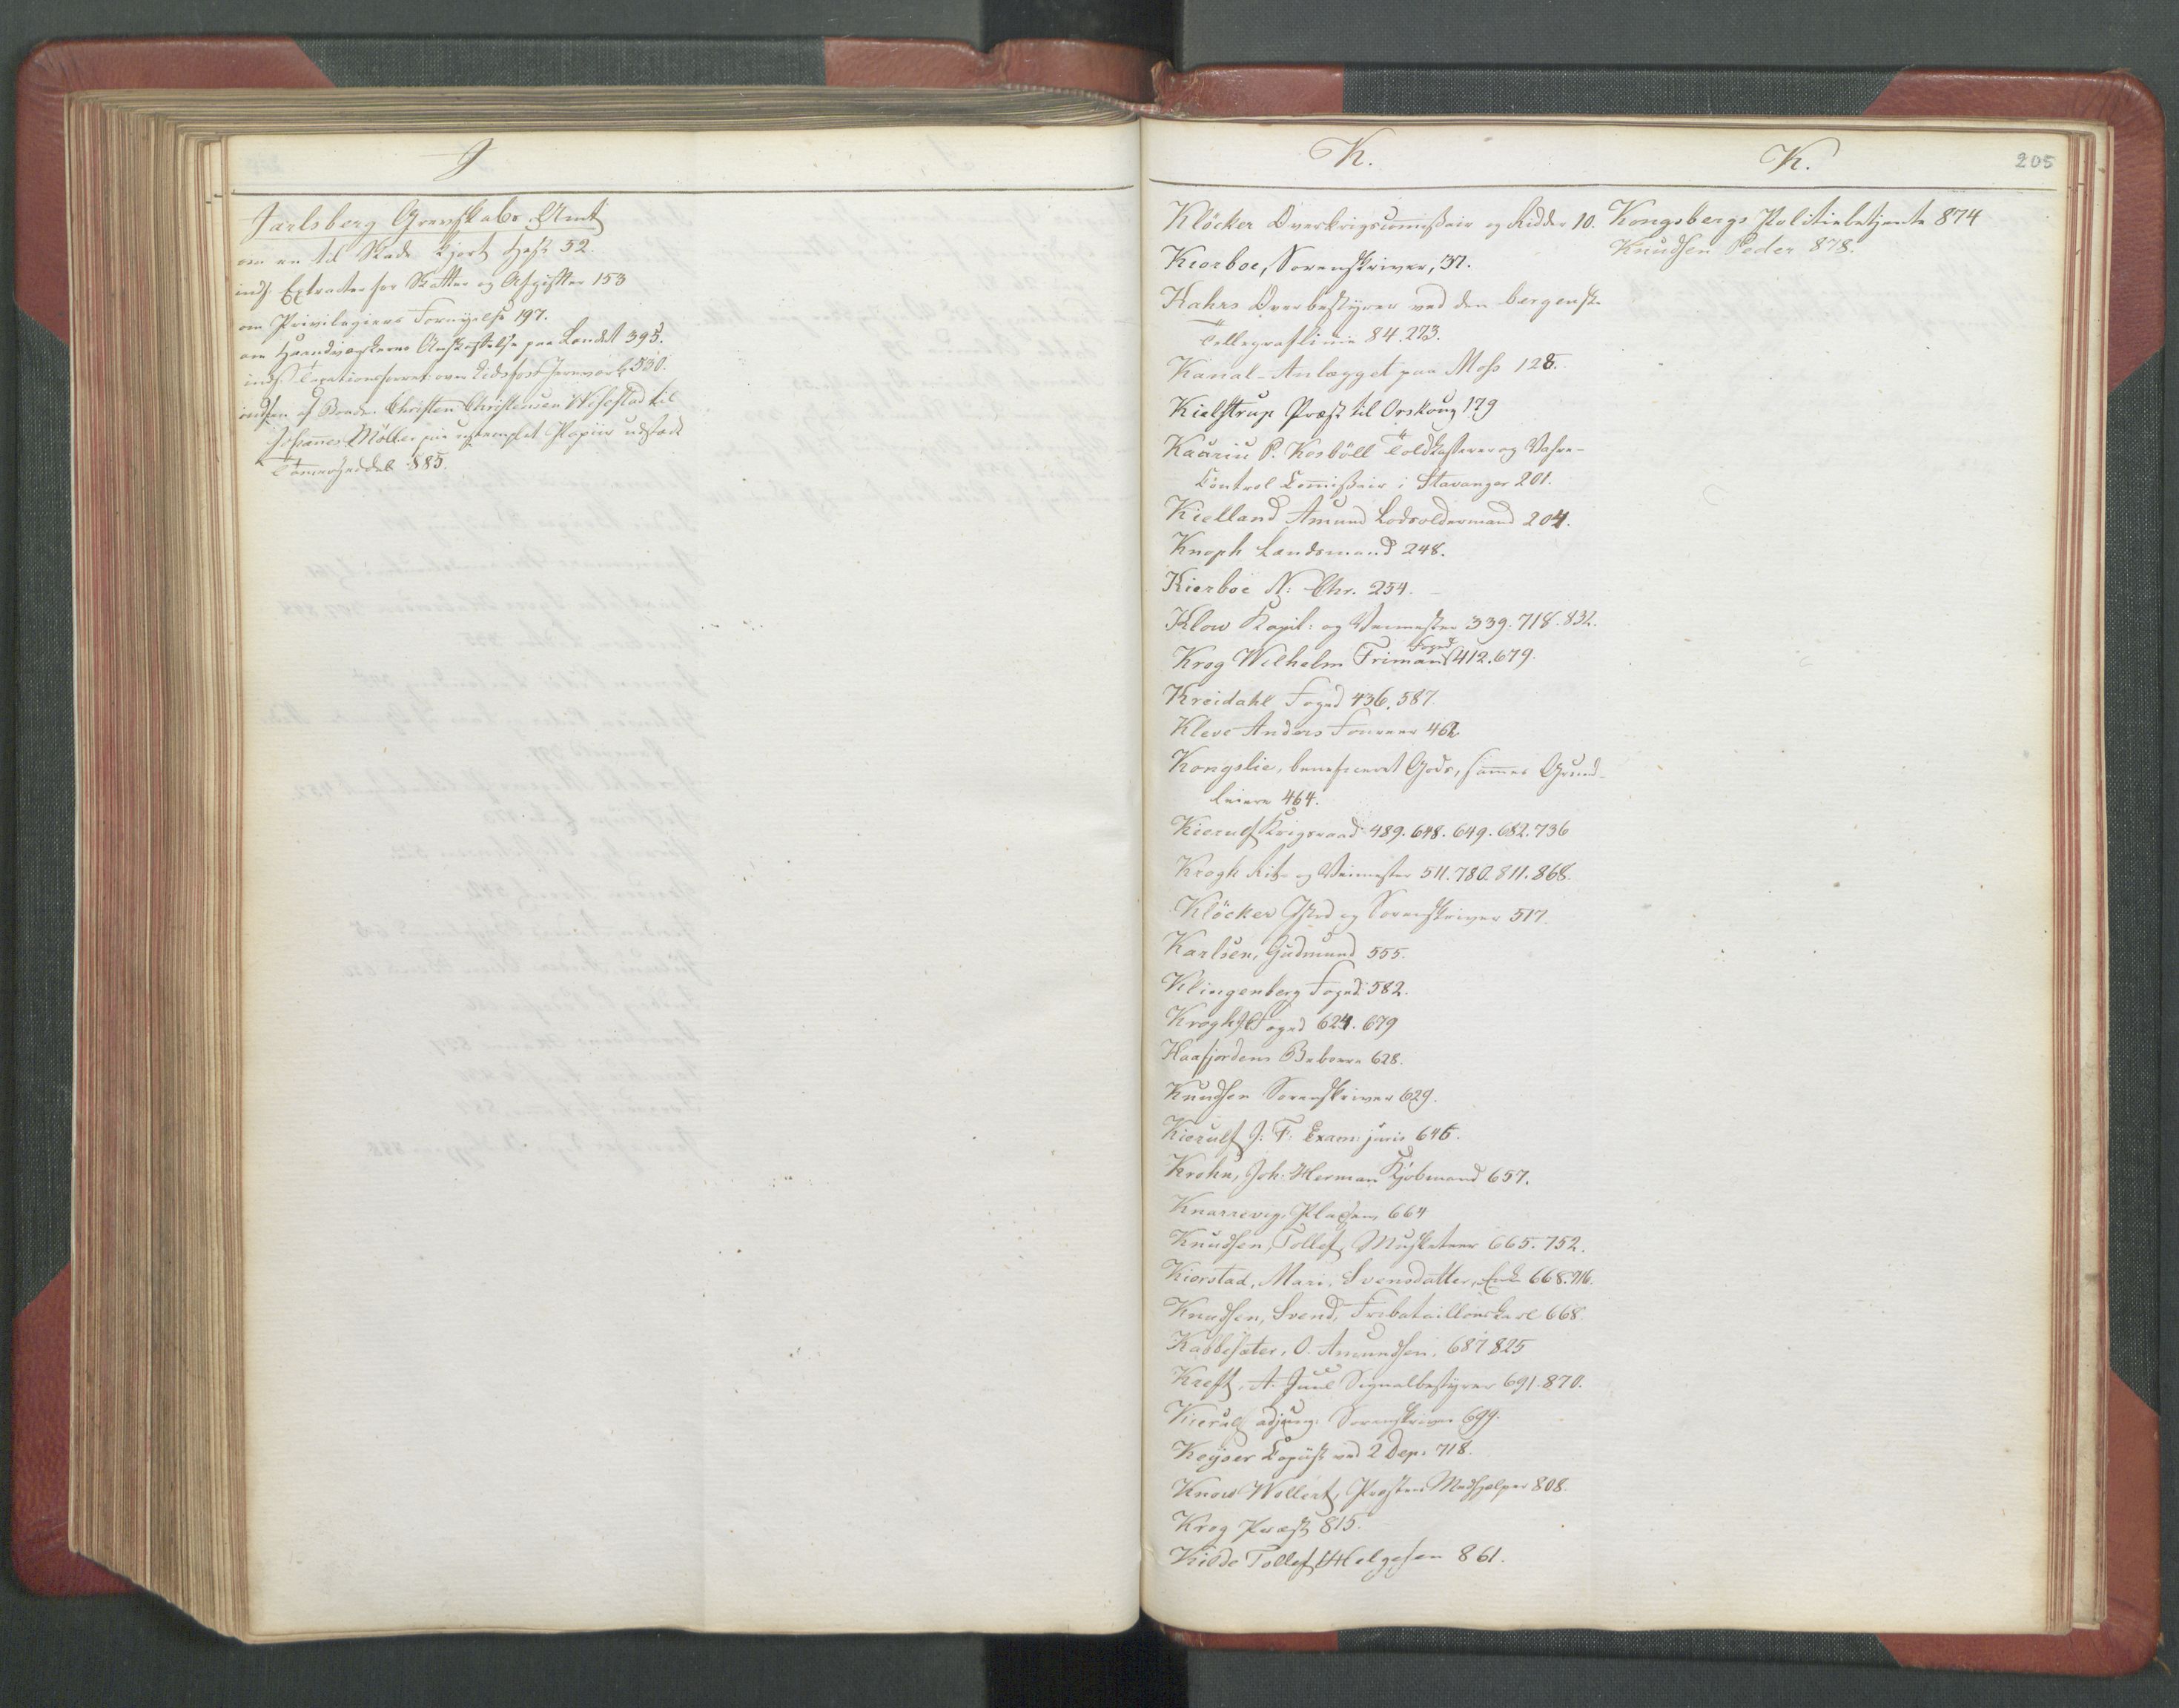 J
Jarlsberg Grevskabs Amt
om en til Skade kjørt Hest 52.
inds. Extracter for Skatter og Afgifter 153
om Privilegiers Fornyelse 197.
om Haandværkernes paa Landet 395.
inds. Taxationsforret: over Eidsfos Jernværk 530.
af Bonde Christen Christensen til
Johannes Møller paa ustemplet Papiir udstædt
885.
K.
Klöcker Overkrigscommissair og Ridder 10.
Kiorboe, Sorenskriver, 37.
Kahrs Overbestyrer ved den bergenske
Tellegraflinie 84. 273.
Kanal-Anlægget paa Moss 128.
Kielstrup Præst til Orskoug 179
Kauriu P. Kosböll Toldkasserer og Vahre-
Control Commissair i Stavanger 201.
Kielland Amund Lodsoldermand 204.
Knoph Landsmand 248.
Kierboe N: Chr. 254.
Klow Kapit: og Veimester 339. 718. 832.
Krog Wilhelm Friman Foged 412. 679.
Kreidahl Foged 436. 587.
Kleve Anders Foureer 462
Kongslie, beneficeret Gods, sammes Grund-
leiere 464.
Kierulf Krigsraad 489. 648. 649. 682. 736
Krogh Rit- og Veimester 511. 780. 811. 868.
Klöcker Jsted og Sorenskriver 517
Karlsen, Gudmund 555.
Klingenberg Foged 582.
Krogh Foged 624. 679
Kaafjordens Beboere 628.
Knudsen Sorenskriver 629.
Kierulf J: F: Exam: juris 646.
Krohn, Joh: Herman Kjøbmand 657.
Knarrevig, Pladsen, 664
Knudsen, Tollef, Musketeer 665. 752.
Kierstad, Mari, Svensdatter, Enke 668. 716.
Knudsen, Svend, Frebataillonskarl 668.
Kabbesæter, O. Amundsen. 687 825
Kreft, A: Juul Signalbestyrer 691. 870.
Kierulf adjung: Sorenskriver 699.
Keyser Copiist ved 2 Dep. 718.
Know Wollert, Præstens Medhjelper 808.
Krog Præst 815.
Kilde Tollef Helgesen 861.
K.
205
Kongsbergs Politiebetjente 874
Knudsen Peder 878.